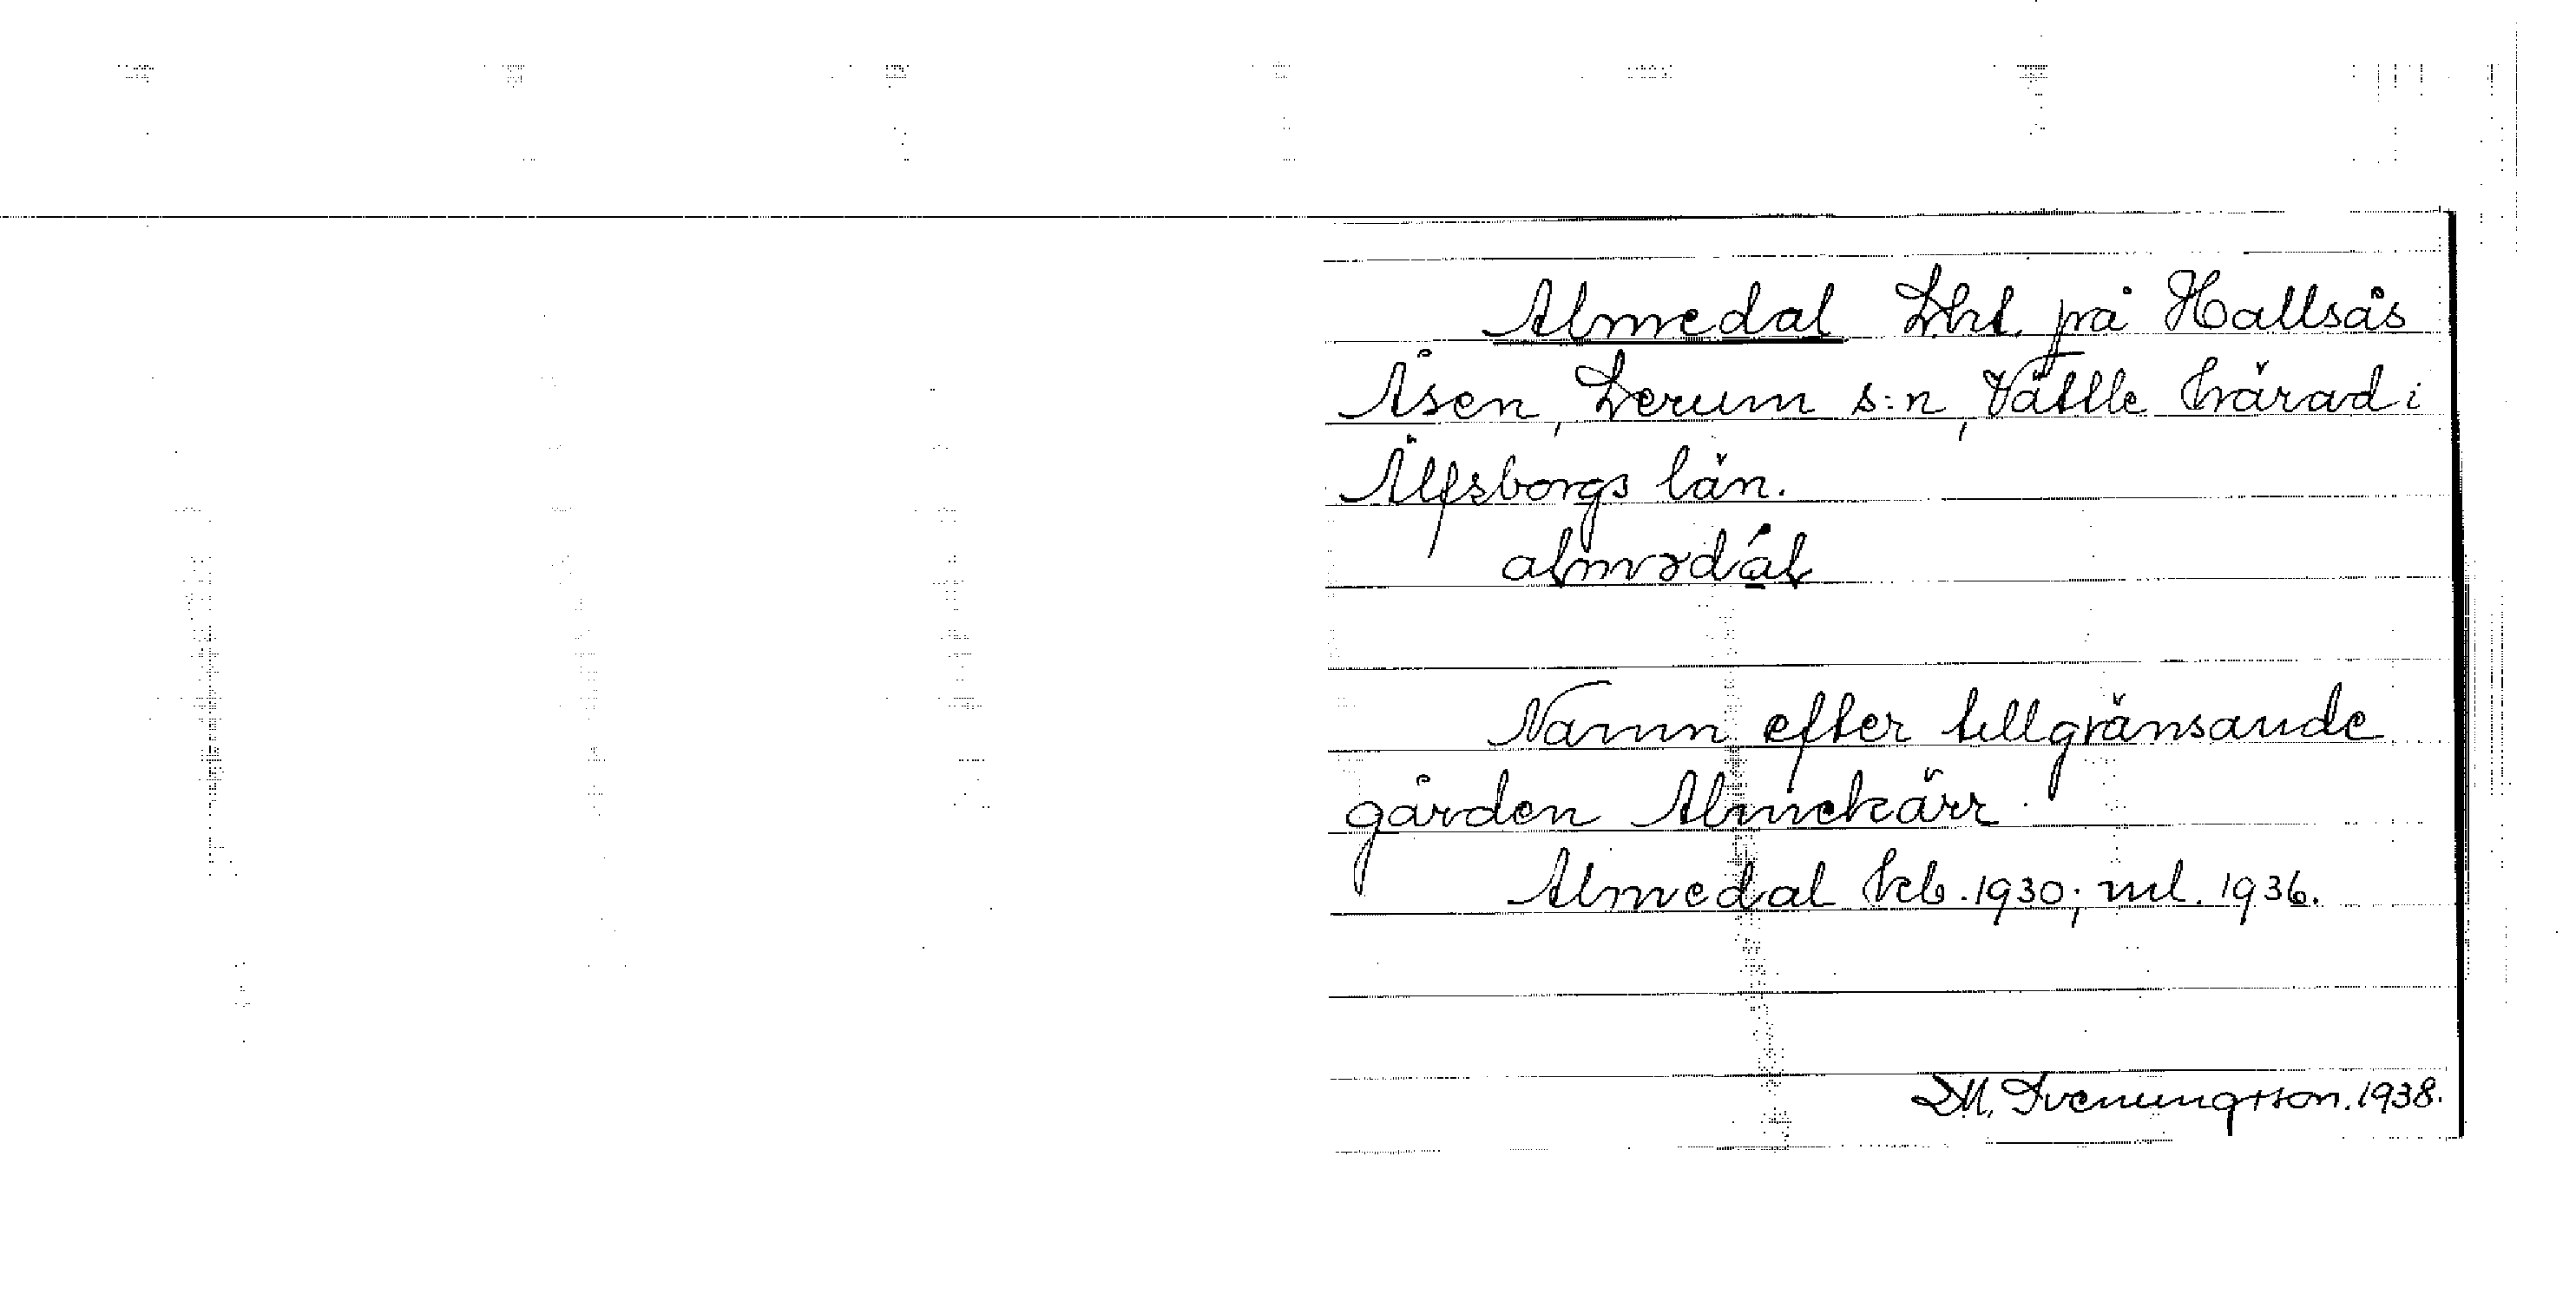 Almedal Lht. på Hallsås
Åsen, Lerum s:n, Vättle härad i
Älfsborgs län.
almədál
Namn efter tillgränsande
gården Almekärr.
Almedal kb. 1930; ml. 1936.
D.M. Svenungsson. 1938.